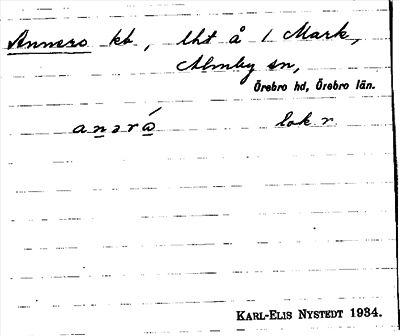 Annero kb, lht å 1 Mark,
Almby sn,
Örebro hd, Örebro län.
anəró lok. r.
KARL-ELIS NYSTEDT 1934.